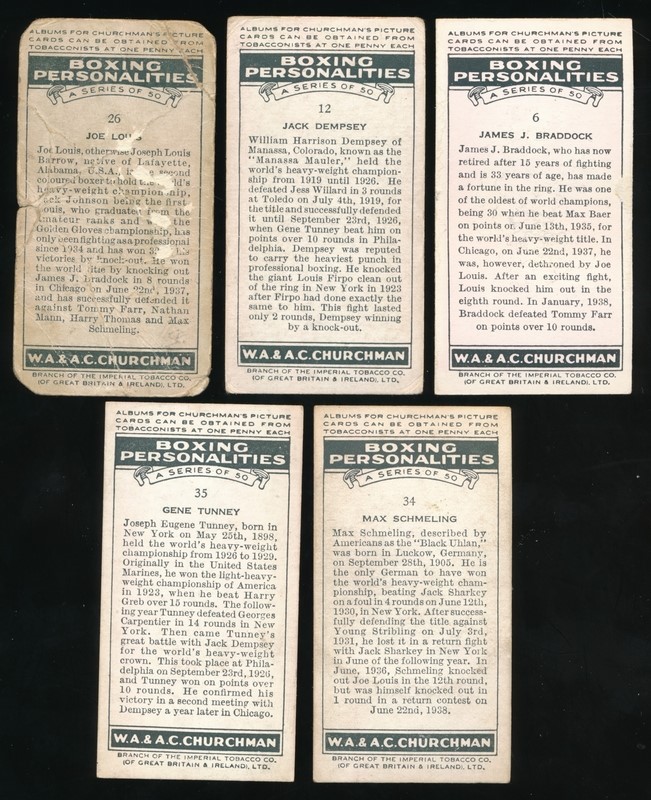 ALBUMS FOR CHURCHMAN'S PICTURE
CARDS CAN BE OBTAINED FROM
TOBACCONISTS AT ONE PENNY EACH
BOXING
PERSONALITIES
A SERIES OF 50
26
JOE LOUIS
Joe Louis, otherwise Joseph Louis
Barrow, native of Lafayette,
Alabama, U.S.A., second
coloured boxer to hold the world's
heavy-weight championship,
Jack Johnson being the first
Louis, who graduated from the
amateur ranks and the
Golden Gloves championship, has
only been fighting as a professional
since 1934 and has won
victories by knock-out. He won
the world title by knocking out
James J. Braddock in 8 rounds
in Chicago on June 22nd, 1937,
and has successfully defended it
against Tommy Farr, Nathan
Mann, Harry Thomas and Max
Schmeling.
W.A. & A.C. CHURCHMAN
BRANCH OF THE IMPERIAL TOBACCO CO.
(OF GREAT BRITAIN & IRELAND), LTD.
ALBUMS FOR CHURCHMAN'S PICTURE
CARDS CAN BE OBTAINED FROM
TOBACCONISTS AT ONE PENNY EACH
BOXING
PERSONALITIES
A SERIES OF 50
12
JACK DEMPSEY
William Harrison Dempsey of
Manassa, Colorado, known as the
"Manassa Mauler," held the
world's heavy-weight champion-
ship from 1919 until 1926. He
defeated Jess Willard in 3 rounds
at Toledo on July 4th, 1919, for
the title and successfully defended
it until September 23rd, 1926,
when Gene Tunney beat him on
points over 10 rounds in Phila-
delphia. Dempsey was reputed
to carry the heaviest punch in
professional boxing. He knocked
the giant Louis Firpo clean out
of the ring in New York in 1923
after Firpo had done exactly the
same to him. This fight lasted
only 2 rounds, Dempsey winning
by a knock-out.
W.A. & A.C. CHURCHMAN
BRANCH OF THE IMPERIAL TOBACCO CO.
(OF GREAT BRITAIN & IRELAND), LTD.
ALBUMS FOR CHURCHMAN'S PICTURE
CARDS CAN BE OBTAINED FROM
TOBACCONISTS AT ONE PENNY EACH
BOXING
PERSONALITIES
A SERIES OF 50
6
JAMES J. BRADDOCK
James J. Braddock, who has now
retired after 15 years of fighting
and is 33 years of age, has made
a fortune in the ring. He was one
of the oldest of world champions,
being 30 when he beat Max Baer
on points on June 13th, 1935, for
the world's heavy-weight title. In
Chicago, on June 22nd, 1937, he
was, however, dethroned by Joe
Louis. After an exciting fight,
Louis knocked him out in the
eighth round. In January, 1938,
Braddock defeated Tommy Farr
on points over 10 rounds.
W.A. & A.C. CHURCHMAN
BRANCH OF THE IMPERIAL TOBACCO CO.
(OF GREAT BRITAIN & IRELAND), LTD.
ALBUMS FOR CHURCHMAN'S PICTURE
CARDS CAN BE OBTAINED FROM
TOBACCONISTS AT ONE PENNY EACH
BOXING
PERSONALITIES
A SERIES OF 50
35
GENE TUNNEY
Joseph Eugene Tunney, born in
New York on May 25th, 1898,
held the world's heavy-weight
championship from 1926 to 1929.
Originally in the United States
Marines, he won the light-heavy-
weight championship of America
in 1923, when he beat Harry
Greb over 15 rounds. The follow-
ing year Tunney defeated Georges
Carpentier in 14 rounds in New
York. Then came Tunney's
great battle with Jack Dempsey
for the world's heavy-weight
crown. This took place at Phila-
delphia on September 23rd, 1926,
and Tunney won on points over
10 rounds. He confirmed his
victory in a second meeting with
Dempsey a year later in Chicago.
W.A. & A.C. CHURCHMAN
BRANCH OF THE IMPERIAL TOBACCO CO.
(OF GREAT BRITAIN & IRELAND), LTD.
ALBUMS FOR CHURCHMAN'S PICTURE
CARDS CAN BE OBTAINED FROM
TOBACCONISTS AT ONE PENNY EACH
BOXING
PERSONALITIES
A SERIES OF 50
34
MAX SCHMELING
Max Schmeling, described by
Americans as the "Black Uhlan,"
was born in Luckow, Germany,
on September 28th, 1905. He is
the only German to have won
the world's heavy-weight cham-
pionship, beating Jack Sharkey
on a foul in 4 rounds on June 12th,
1930, in New York. After success-
fully defending the title against
Young Stribling on July 3rd,
1931, he lost it in a return fight
with Jack Sharkey in New York
in June of the following year. In
June, 1936, Schmeling knocked
out Joe Louis in the 12th round,
but was himself knocked out in
1 round in a return contest on
June 22nd, 1938.
W.A. & A.C. CHURCHMAN
BRANCH OF THE IMPERIAL TOBACCO CO.
(OF GREAT BRITAIN & IRELAND), LTD.